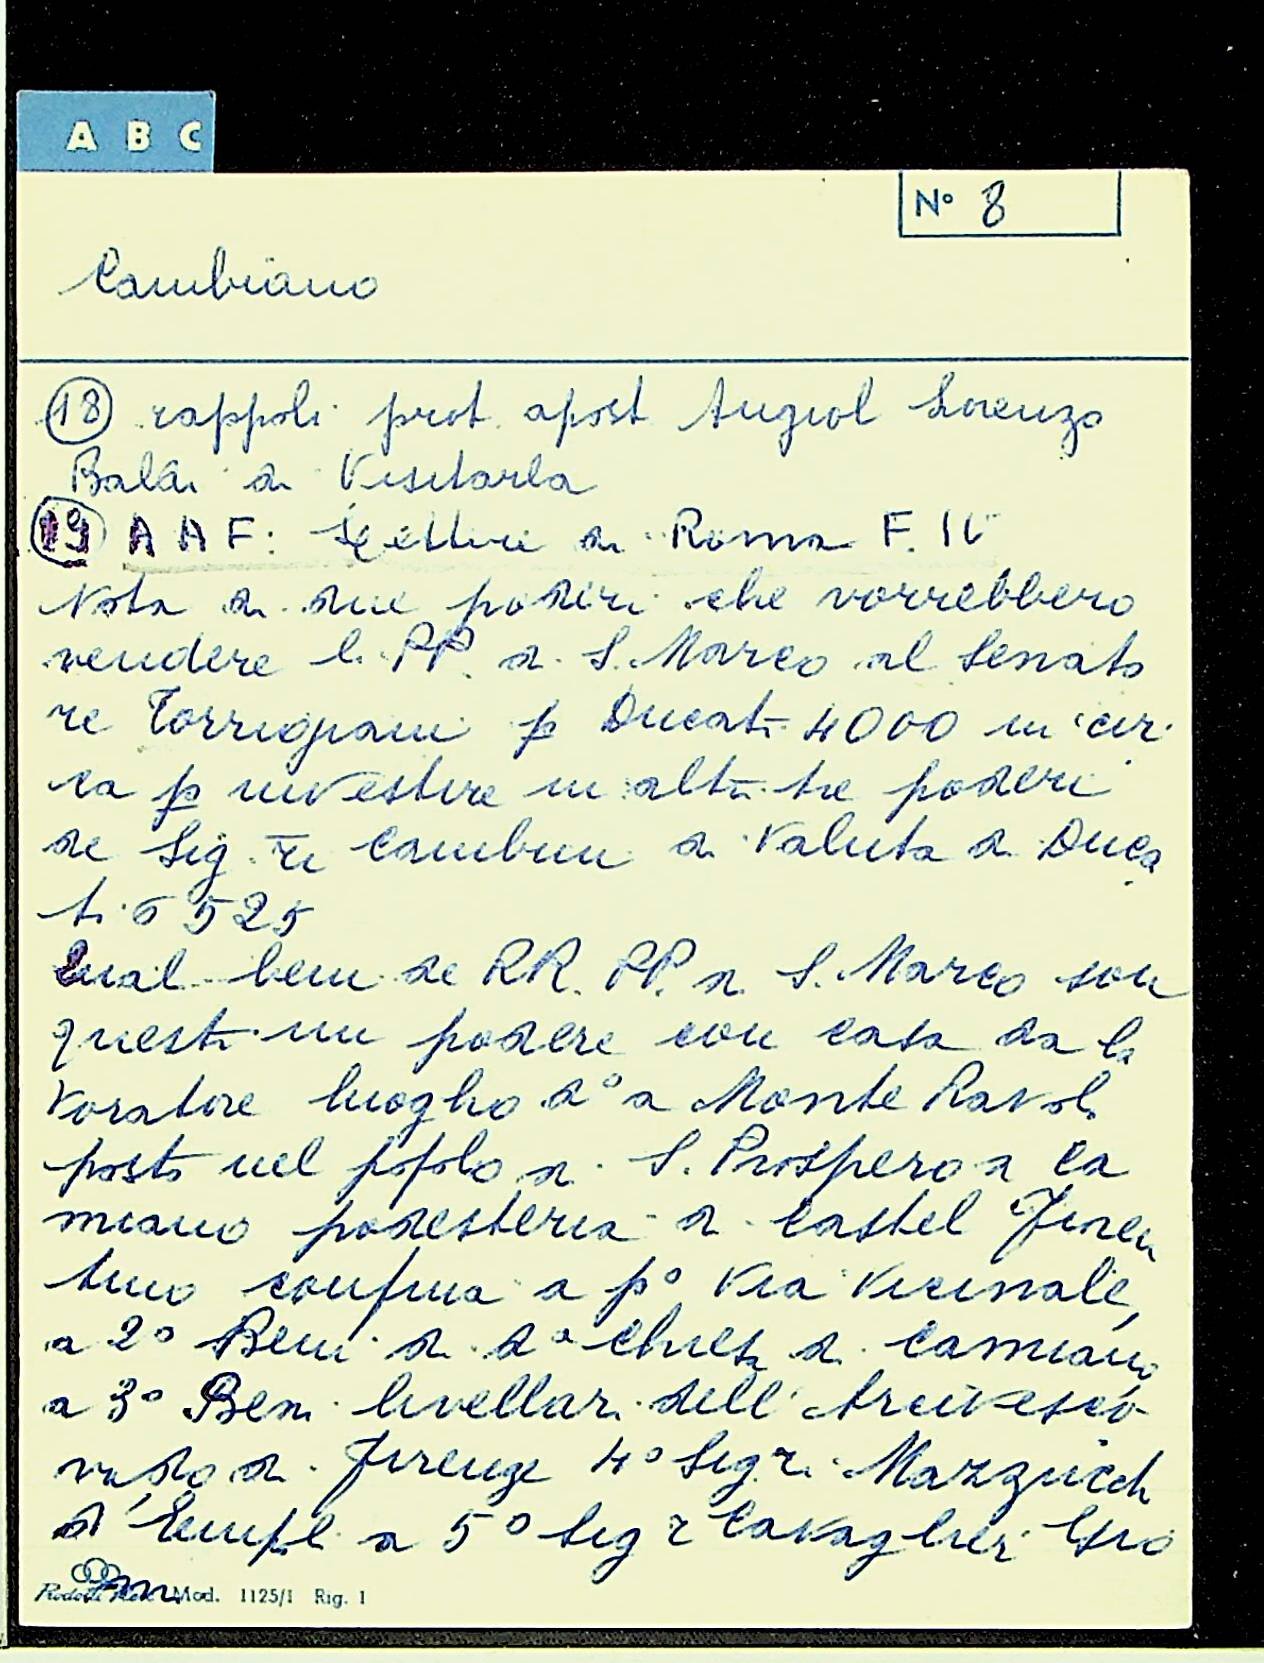 A B C
Nº 8
Cambiano
18 rappoli prot. apost Angiol Lorenzo
Baldi di Visitarla
19 A A F: di Roma F. II
Nota di due poderi che vorrebbero
vendere li PP. di S. Marco al Senato
re Torrigiani p Ducati 4000 in cir
ca p investire in altri tre poderi
de Sig.ri Cambini di Valuta di Duca
ti 6525
Qual beni de RR. PP. di S. Marco son
questi un podere con casa da la
voratore luogho dº a Monte Ravoli
posto nel popolo di S. Prospero a Ca
miano podesteria di Castel Fioren
tino confina a pº Via Vicinale,
a 2º Beni di dª chiesa di Camiano
a 3º Beni livellari dell' Arcivesco
vado di Firenze 4º Sigri Mazzuich
d' Empli a 5º Sig r Cavaglier Gio
Mod. 1125/1 Rig. 1